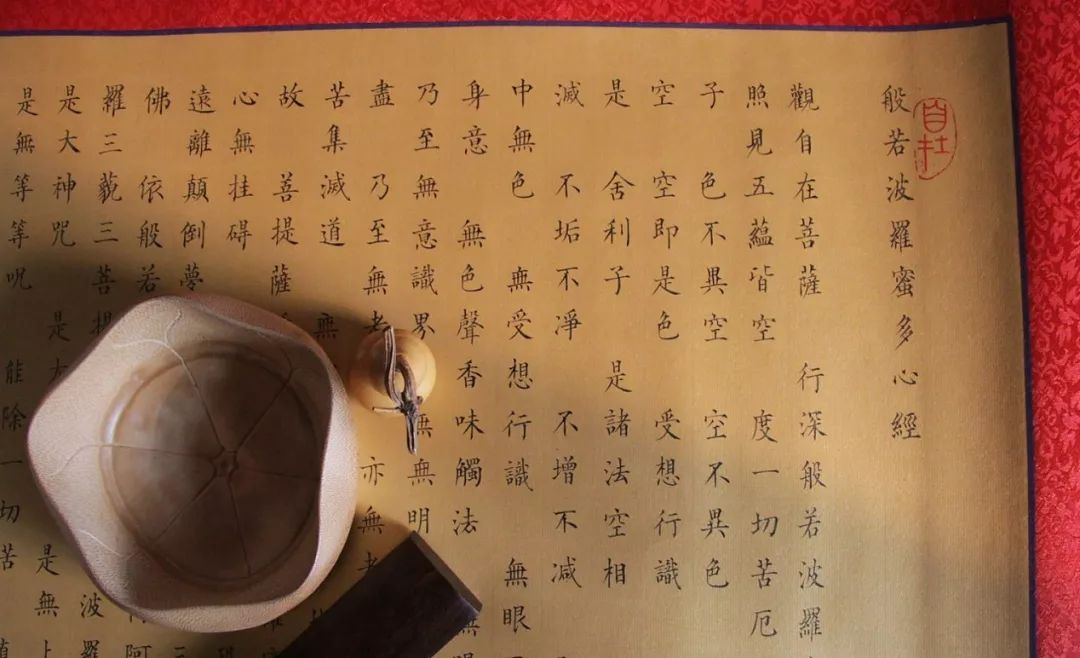 般若波羅蜜多心經
觀自在菩薩 行深般若波羅
照見五蘊皆空 度一切苦厄
子 色不異空 空不異色
空 空即是色 受想行識
是 舍利子 是諸法空相
滅 不垢不淨 不增不減
中無色 無受想行識 無眼
身意 無色聲香味觸法 無
乃至無意識界 無無明
盡 乃至無老 亦無老
苦集滅道 無
故 菩提薩
心無挂碍
遠離顛倒夢
佛 依般若 阿
羅三藐三菩提 波羅
是大神咒 是大 是無上
是無等等呪 能除一切苦